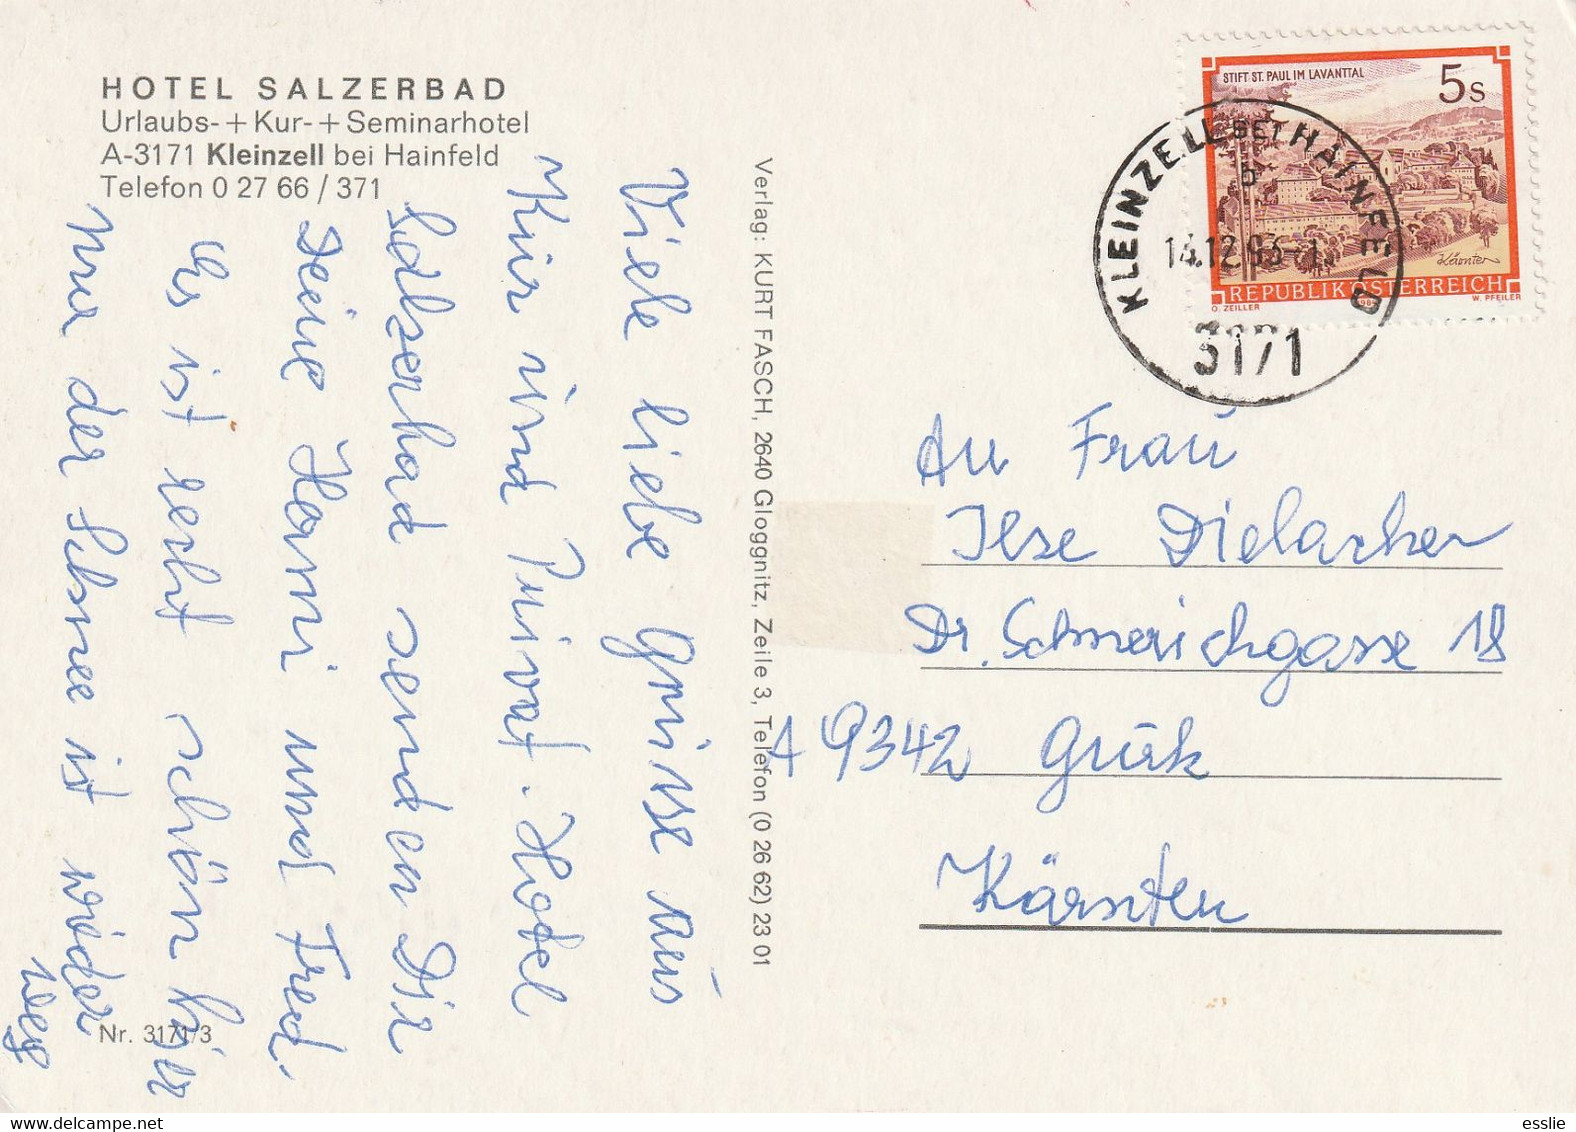 HOTEL SALZERBAD
Urlaubs-+Kur-+Seminarhotel
A-3171 Kleinzell bei Hainfeld
Telefon 0 27 66 / 371
Viele liebe Grüsse aus
Kur und Privat. Hotel
Salzerbad senden Dir
Deine Hermi und Fred.
Es ist recht schön hier
nur der Schnee ist wieder
weg
Nr. 3171/3
Verlag: KURT FASCH, 2640 Gloggnitz, Zeile 3, Telefon (0 26 62) 23 01
STIFT ST. PAUL IM LAVANTTAL
5s
Kärnten
REPUBLIK ÖSTERREICH
O. ZEILLER
W. PFEILER
KLEINZELL BEI HAINFELD
b
3171
An Frau
Ilse Dielacher
Dr. Schmerichgasse 18
A 9342 Gurk
Kärnten
esslie